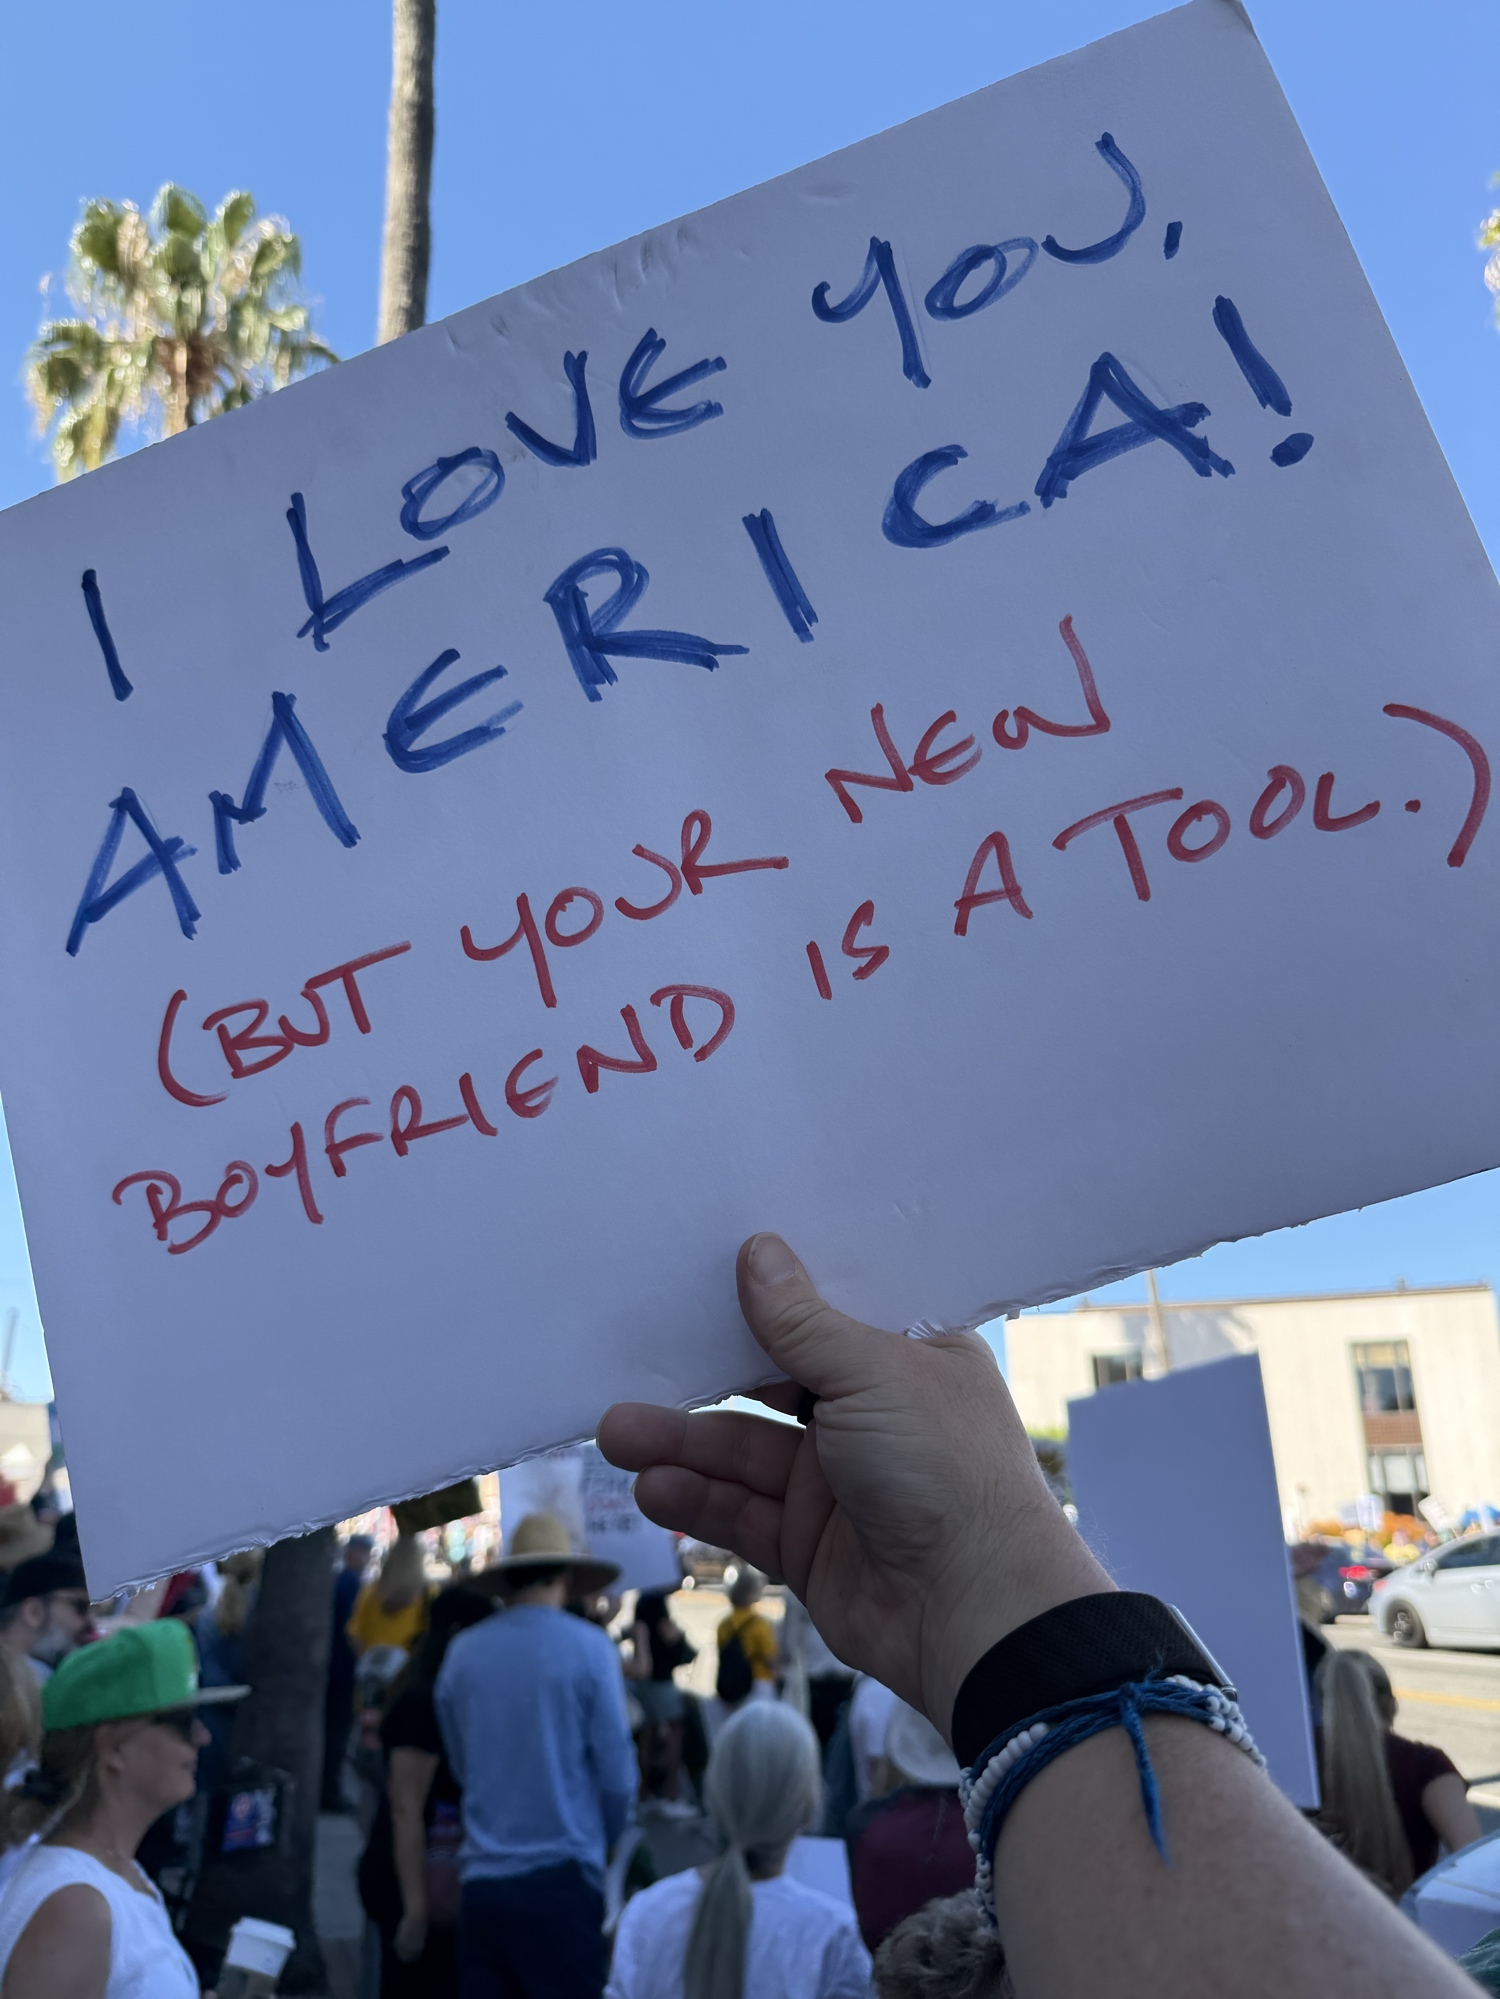 I LOVE YOU,
AMERICA!
(BUT YOUR NEW
BOYFRIEND IS A TOOL.)